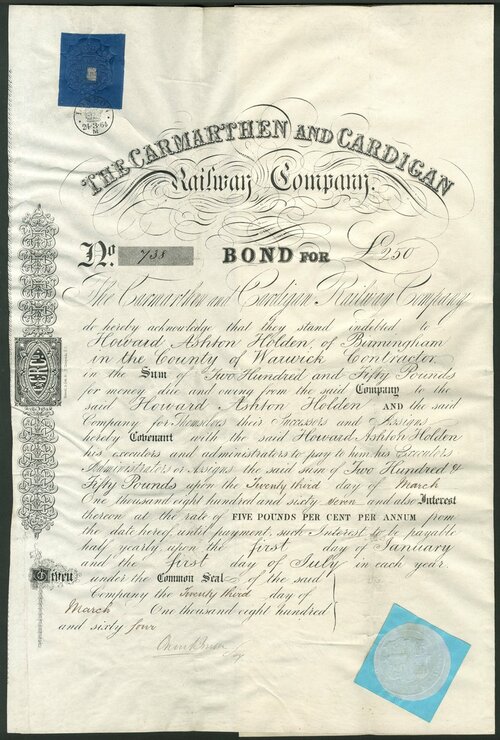 21·3·64
M
THE CARMARTHEN AND CARDIGAN
Railway Company.
No. 738 BOND FOR £250
The Carmarthen and Cardigan Railway Company
do hereby acknowledge that they stand indebted to
Howard Ashton Holden, of Birmingham
in the County of Warwick Contractor
in the Sum of Two Hundred and Fifty Pounds
for money due and owing from the said Company to the
said Howard Ashton Holden AND the said
Company for Themselves their Successors and Assigns
hereby Covenant with the said Howard Ashton Holden
his executors and administrators to pay to him his Executors
Administrators or Assigns the said sum of Two Hundred &
Fifty Pounds upon the Twenty third day of March
One thousand eight hundred and sixty seven and also Interest
thereon at the rate of FIVE POUNDS PER CENT PER ANNUM from
the date hereof until payment, such Interest to be payable
half yearly upon the first day of January
and the first day of July in each year
Given under the Common Seal of the said
Company the Twenty third day of
March One thousand eight hundred
and sixty four